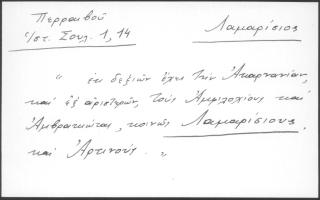 Περραιβοῦ
Ἱστ. Σουλ. 1, 14
Λαμαρίσιος
" ἐκ δεξιῶν ἔχει τὴν Ἀκαρνανίαν,
καὶ ἐξ ἀριστερῶν, τοὺς Ἀμφιλοχίους καὶ
Ἀμβρακιώτας, κοινῶς Λαμαρίσιους,
καὶ Ἀρτινούς. "